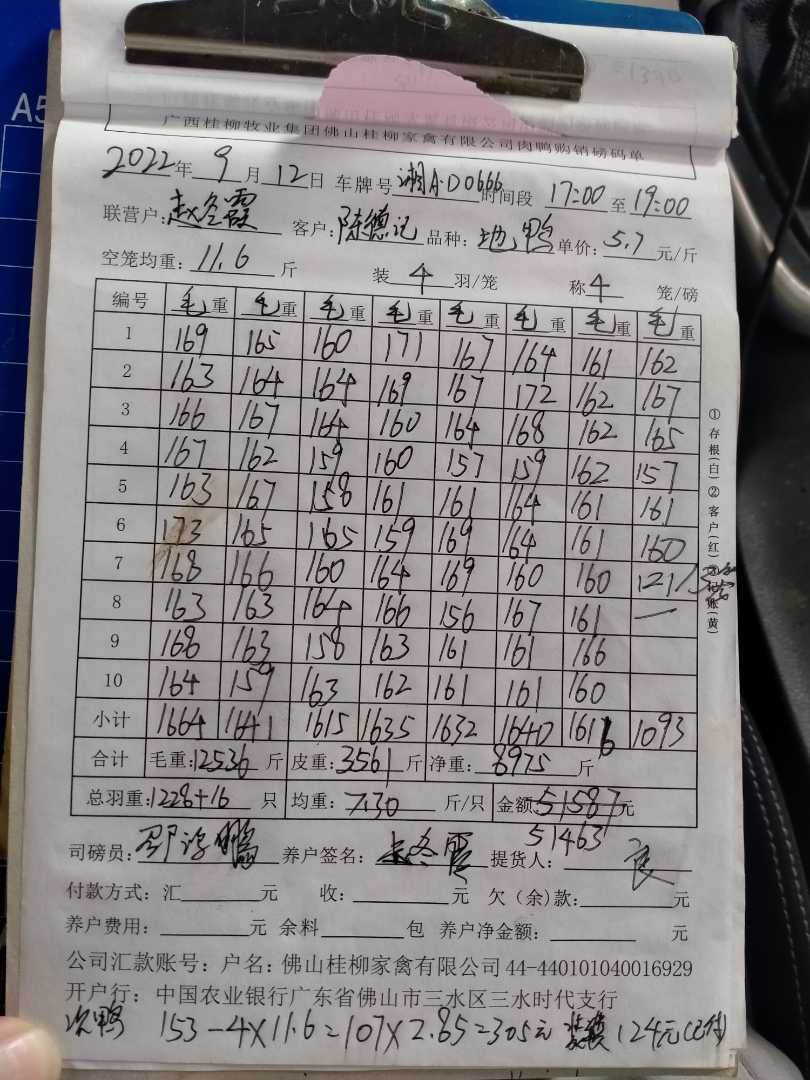 广西桂柳牧业集团佛山桂柳家禽有限公司肉鸭购销磅码单
2022年 9 月 12 日 车牌号 湘A·D0666 时间段 17:00 至 19:00
联营户: 赵冬霞 客户: 陈德记 品种: 地鸭 单价: 5.7 元/斤
空笼均重: 11.6 斤 装 4 羽/笼 称 4 笼/磅
编号 毛重 毛重 毛重 毛重 毛重 毛重 毛重 毛重
1 169 165 160 171 167 164 161 162
2 163 164 164 169 167 172 162 167
3 166 167 164 160 164 168 162 165
4 167 162 159 160 157 159 162 157
5 163 167 158 161 161 164 161 161
6 173 165 165 159 169 164 161 160
7 168 166 160 164 169 160 160 121/3
8 163 163 164 166 156 167 161 —
9 168 163 158 163 161 161 166
10 164 159 163 162 161 161 160
小计 1664 1641 1615 1635 1632 1640 1616 1093
合计 毛重: 12536 斤 皮重: 3561 斤 净重: 8975 斤
总羽重: 1228+16 只 均重: 7.30 斤/只 金额: 51587 元
51463
司磅员: 鹏 养户签名: 冬霞 提货人:
付款方式: 汇 元 收: 元 欠(余)款: 元
养户费用: 元 余料 包 养户净金额: 元
公司汇款账号: 户名: 佛山桂柳家禽有限公司 44-440101040016929
开户行: 中国农业银行广东省佛山市三水区三水时代支行
次鸭 153-4×11.6=107×2.85=305元 124元
①存根(白)②客户(红) 账(黄)